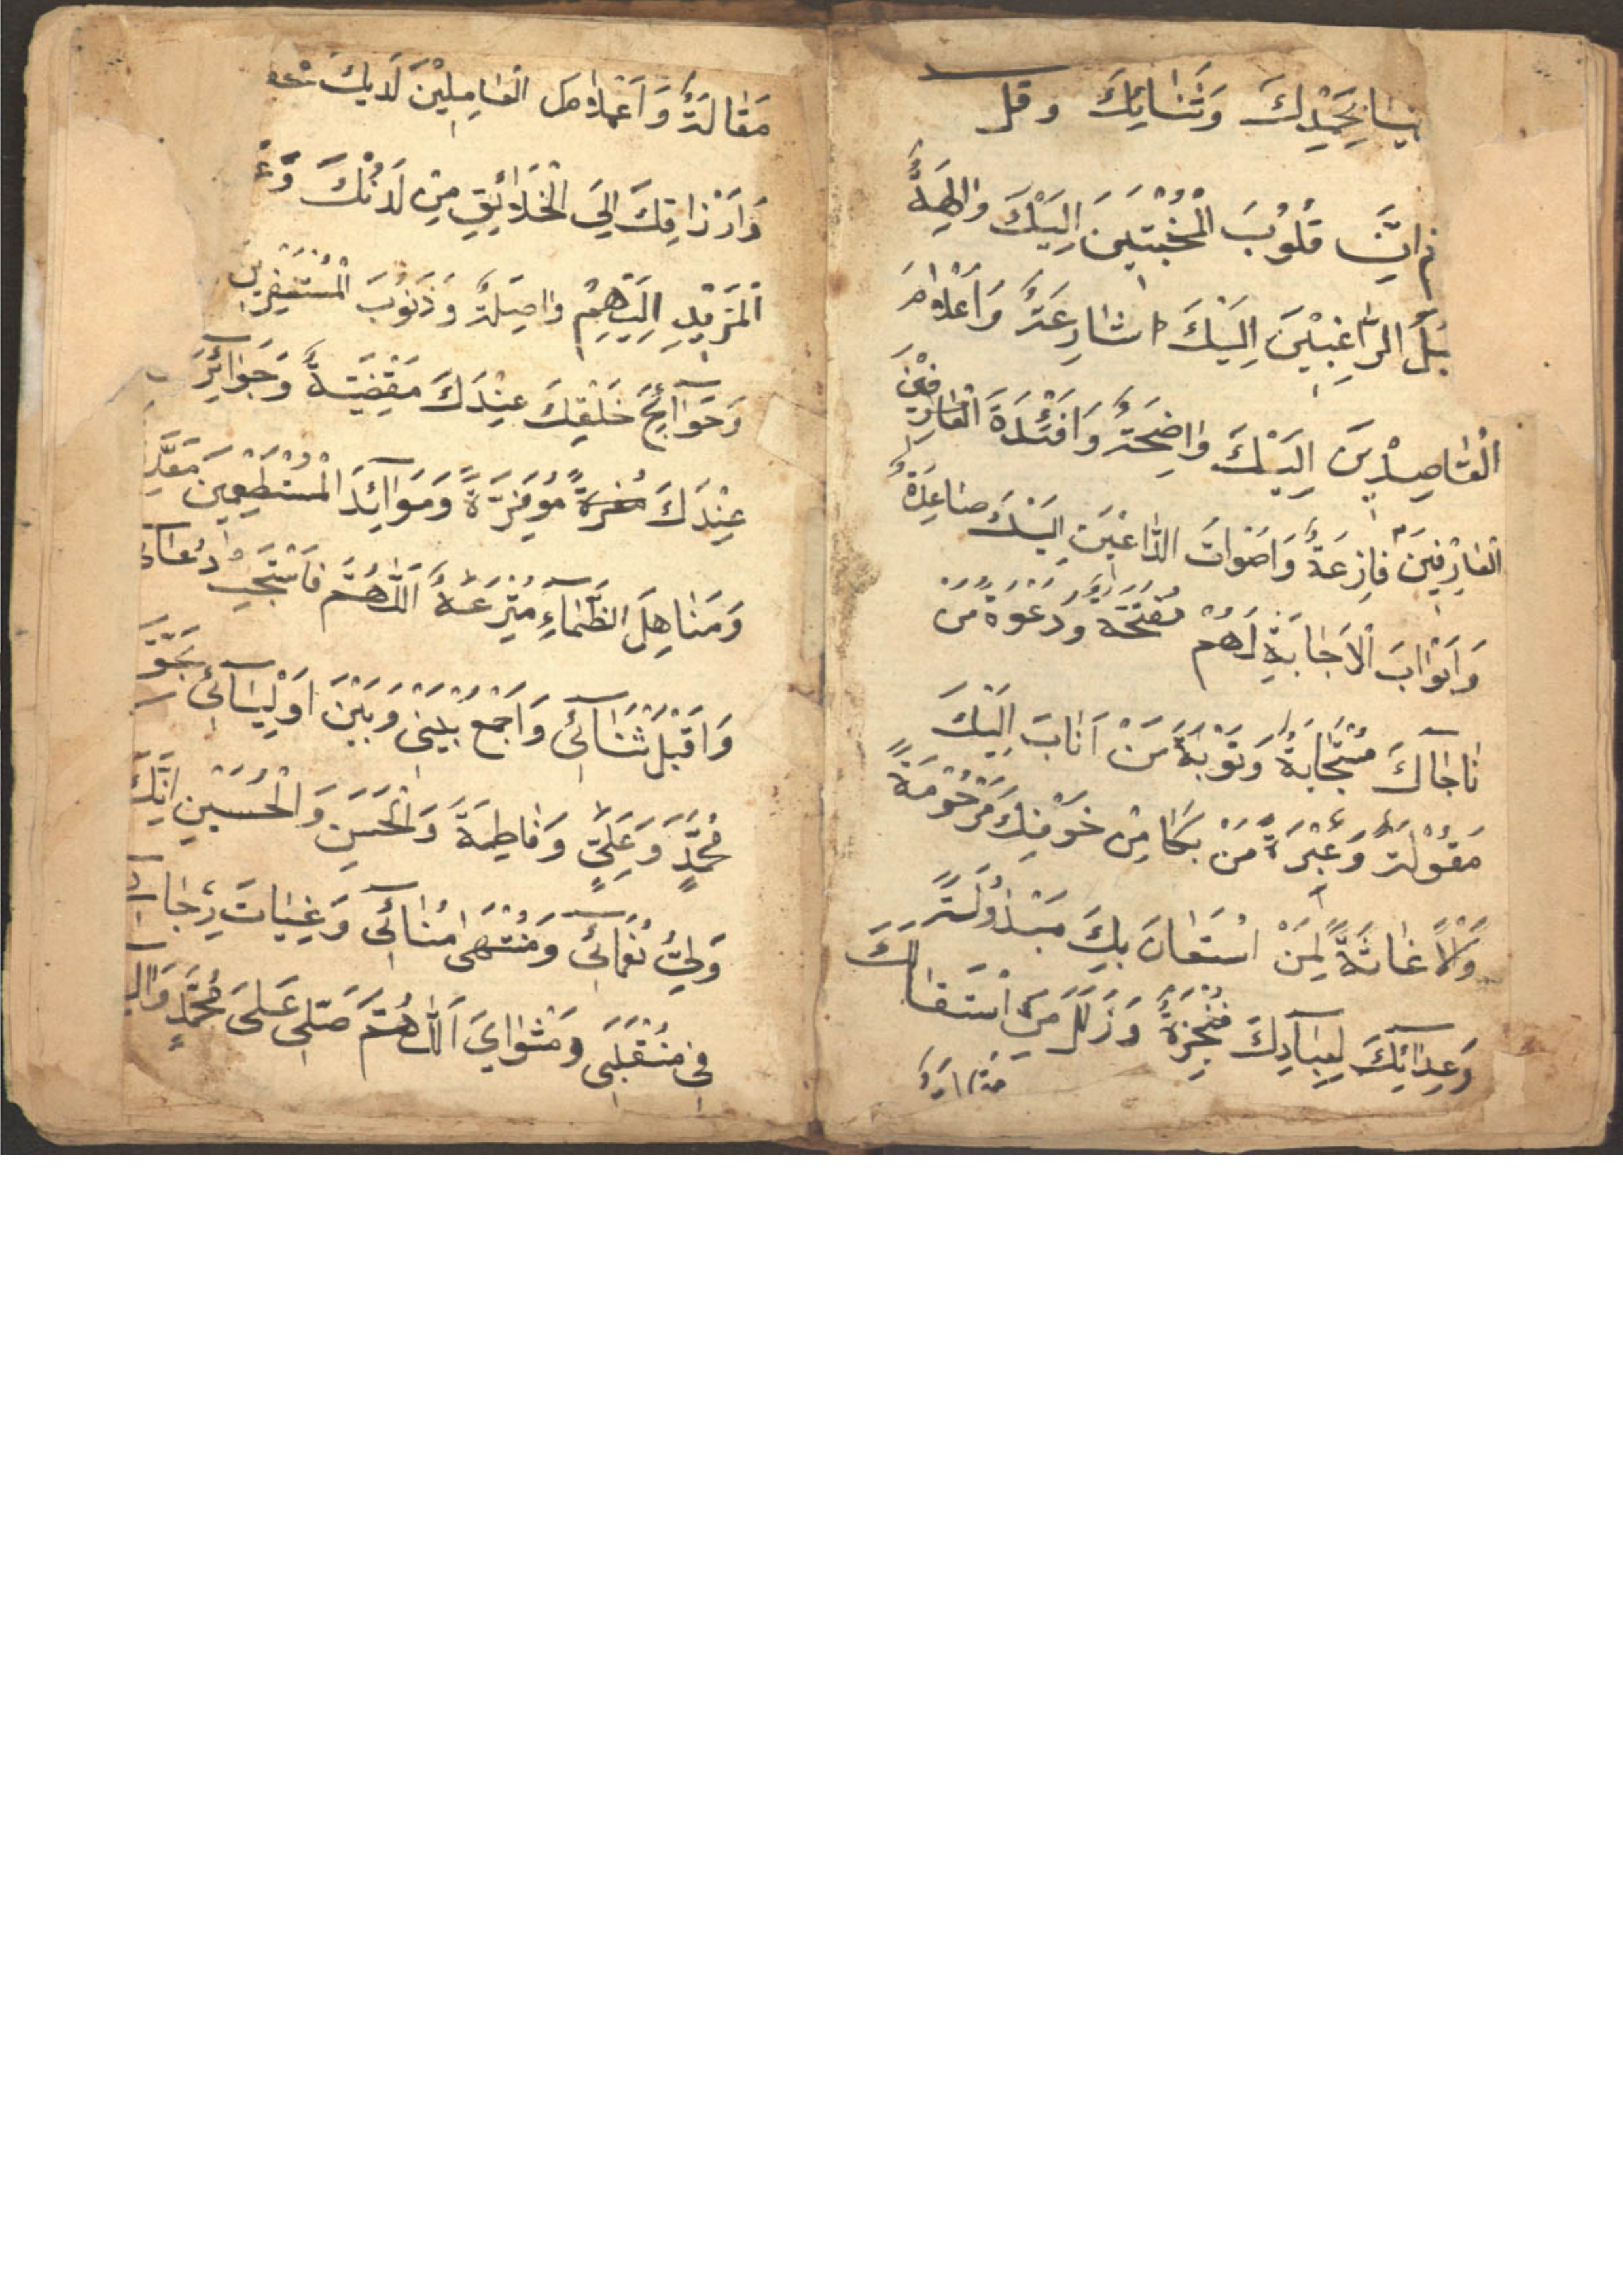 بحمدك وثنائك وقل
قلوب المخبتين اليك والهة
سبل الراغبين اليك شارعة وأعلام
القاصدين اليك واضحة وافئدة العارفين
العارفين فازعة واصوات الداعين اليك صاعدة
وابواب الاجابة لهم مفتحة ودعوة من
ناجاك مستجابة وتوبة من اناب اليك
مقبولة وعبرة من بكا من خوفك مرحومة
والاغاثة لمن استعان بك مبذولة
وعداتك لعبادك منجزة وزلل من استقالك
مقالة واعمال العاملين لديك محفو
وارزاقك الى الخلائق من لدنك وع
المزيد اليهم واصلة وذنوب المستغفرين
وحوآئج خلقك عندك مقضية وجوآئز
عندك موفرة وموآئد المستطعمين معد
ومناهل الظمآء مترعة اللهم فاستجب دعائ
واقبل ثنآئي واجمع بيني وبين اوليآئي بحق
محمد وعلي وفاطمة والحسن والحسين انك
ولي نعمآئي ومنتهى منائي وغيات رجا
في منقلبي ومثواي اللهم صلى على محمد وال